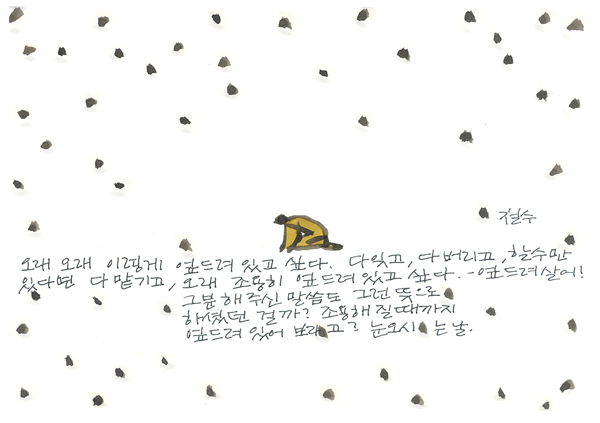 철수
오래 오래 이렇게 엎드려 있고 싶다. 다 잊고, 다 버리고, 할수만
있다면 다 맡기고, 오래 조용히 엎드려 있고 싶다. -엎드려 살어!
그분 해 주신 말씀도 그런 뜻으로
하셨던 걸까? 조용해 질때까지
엎드려 있어 보라고? 눈오시는 날.